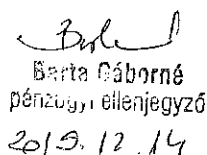 Barta Gáborné
pénzügyi ellenjegyző
2019.12.14